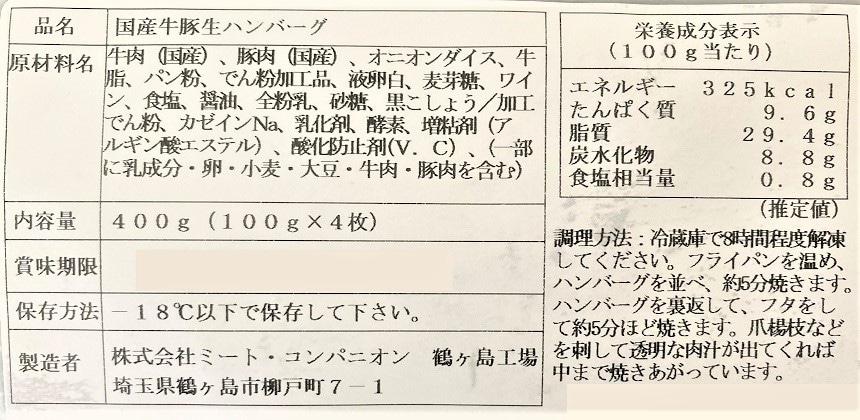 品名 国産牛豚生ハンバーグ
原材料名 牛肉（国産）、豚肉（国産）、オニオンダイス、牛
脂、パン粉、でん粉加工品、液卵白、麦芽糖、ワイ
ン、食塩、醤油、全粉乳、砂糖、黒こしょう／加工
でん粉、カゼインNa、乳化剤、酵素、増粘剤（ア
ルギン酸エステル）、酸化防止剤(V．C）、（一部
に乳成分・卵・小麦・大豆・牛肉・豚肉を含む）
内容量 400g（100g×4枚）
賞味期限
保存方法 －18℃以下で保存して下さい。
製造者 株式会社ミート・コンパニオン 鶴ヶ島工場
埼玉県鶴ヶ島市柳戸町7－1
栄養成分表示
（100g当たり）
エネルギー 325kcal
たんぱく質 9．6g
脂質 29．4g
炭水化物 8．8g
食塩相当量 0．8g
（推定値）
調理方法：冷蔵庫で8時間程度解凍
してください。フライパンを温め、
ハンバーグを並べ、約5分焼きます。
ハンバーグを裏返して、フタをし
て約5分ほど焼きます。爪楊枝など
を刺して透明な肉汁が出てくれば
中まで焼きあがっています。